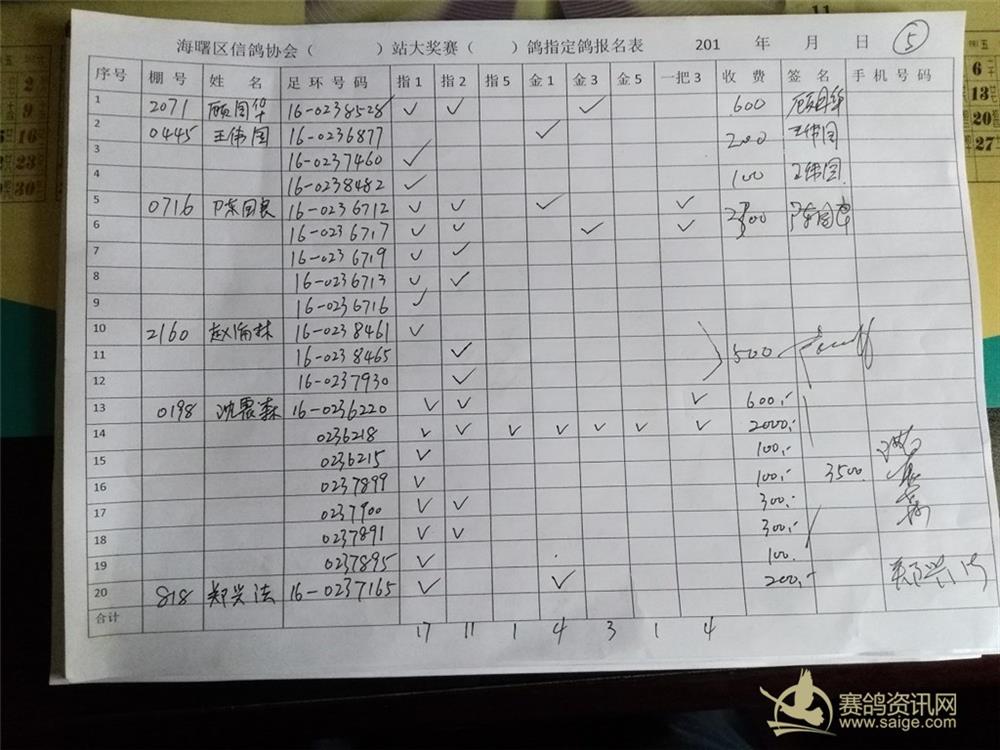 海曙区信鸽协会（ ）站大奖赛（ ）鸽指定鸽报名表 201 年 月 日 ⑤
序号 棚号 姓名 足环号码 指1 指2 指5 金1 金3 金5 一把3 收费 签名 手机号码
1 2071 顾国华 16-0238528 ✓ ✓ ✓ 600 顾国华
2 0445 王伟国 16-0236877 ✓ 200 王伟国
3 16-0237460 ✓
4 16-0238482 ✓ 100 王伟国
5 0716 陈国良 16-0236712 ✓ ✓ ✓ ✓
6 16-0236717 ✓ ✓ ✓ ✓
7 16-0236719 ✓ ✓
8 16-0236713 ✓ ✓
9 16-0236716 ✓
10 2160 16-0238461 ✓
11 16-0238465 ✓ 500
12 16-0237930 ✓
13 0198 沈震森 16-0236220 ✓ ✓ ✓ 600.-
14 0236218 ✓ ✓ ✓ ✓ ✓ ✓ ✓ 2000.-
15 0236215 ✓ 100.-
16 0237899 ✓ 100.- 3500.
17 0237900 ✓ ✓ 300.-
18 0237891 ✓ ✓ 300.-
19 0237895 ✓ 100.
20 818 郑兴法 16-0237165 ✓ ✓ 200.- 郑兴法
合计
17 11 1 4 3 1 4
赛鸽资讯网
www.saige.com